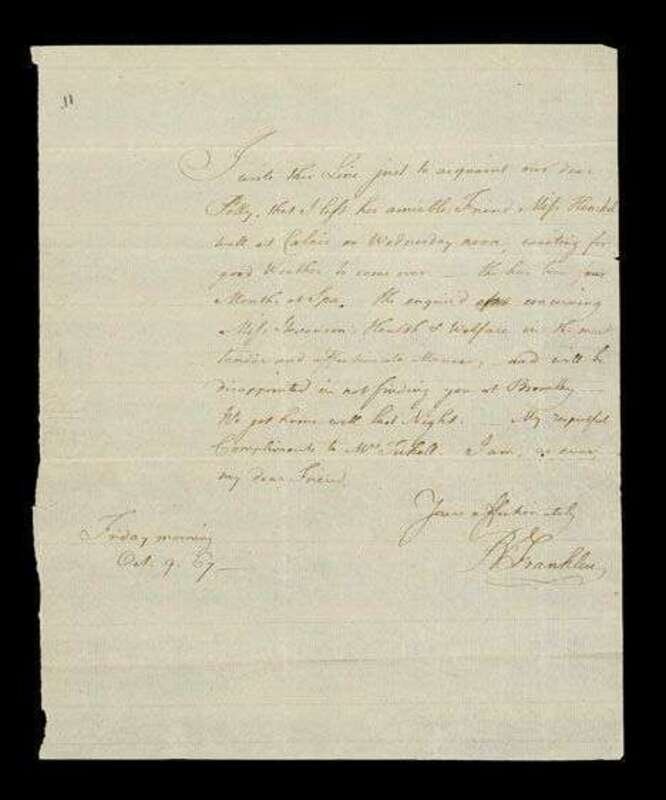 11
I write this Line just to acquaint our dear
Polly, that I left her amiable Friend Miss Henckel
well at Calais on Wednesday noon, waiting for
good Weather to come over — She has been
Months at Spa. She enquired concerning
Miss Stevenson's Health & Welfare in the most
tender and affectionate Manner, and will be
disappointed in not finding you at Bromley
We got home well last Night. — My respectful
Compliments to Mrs Tickell. I am, as ever,
my dear Friend,
Yours affectionately
B Franklin
Friday morning
Oct. 9. 67 —